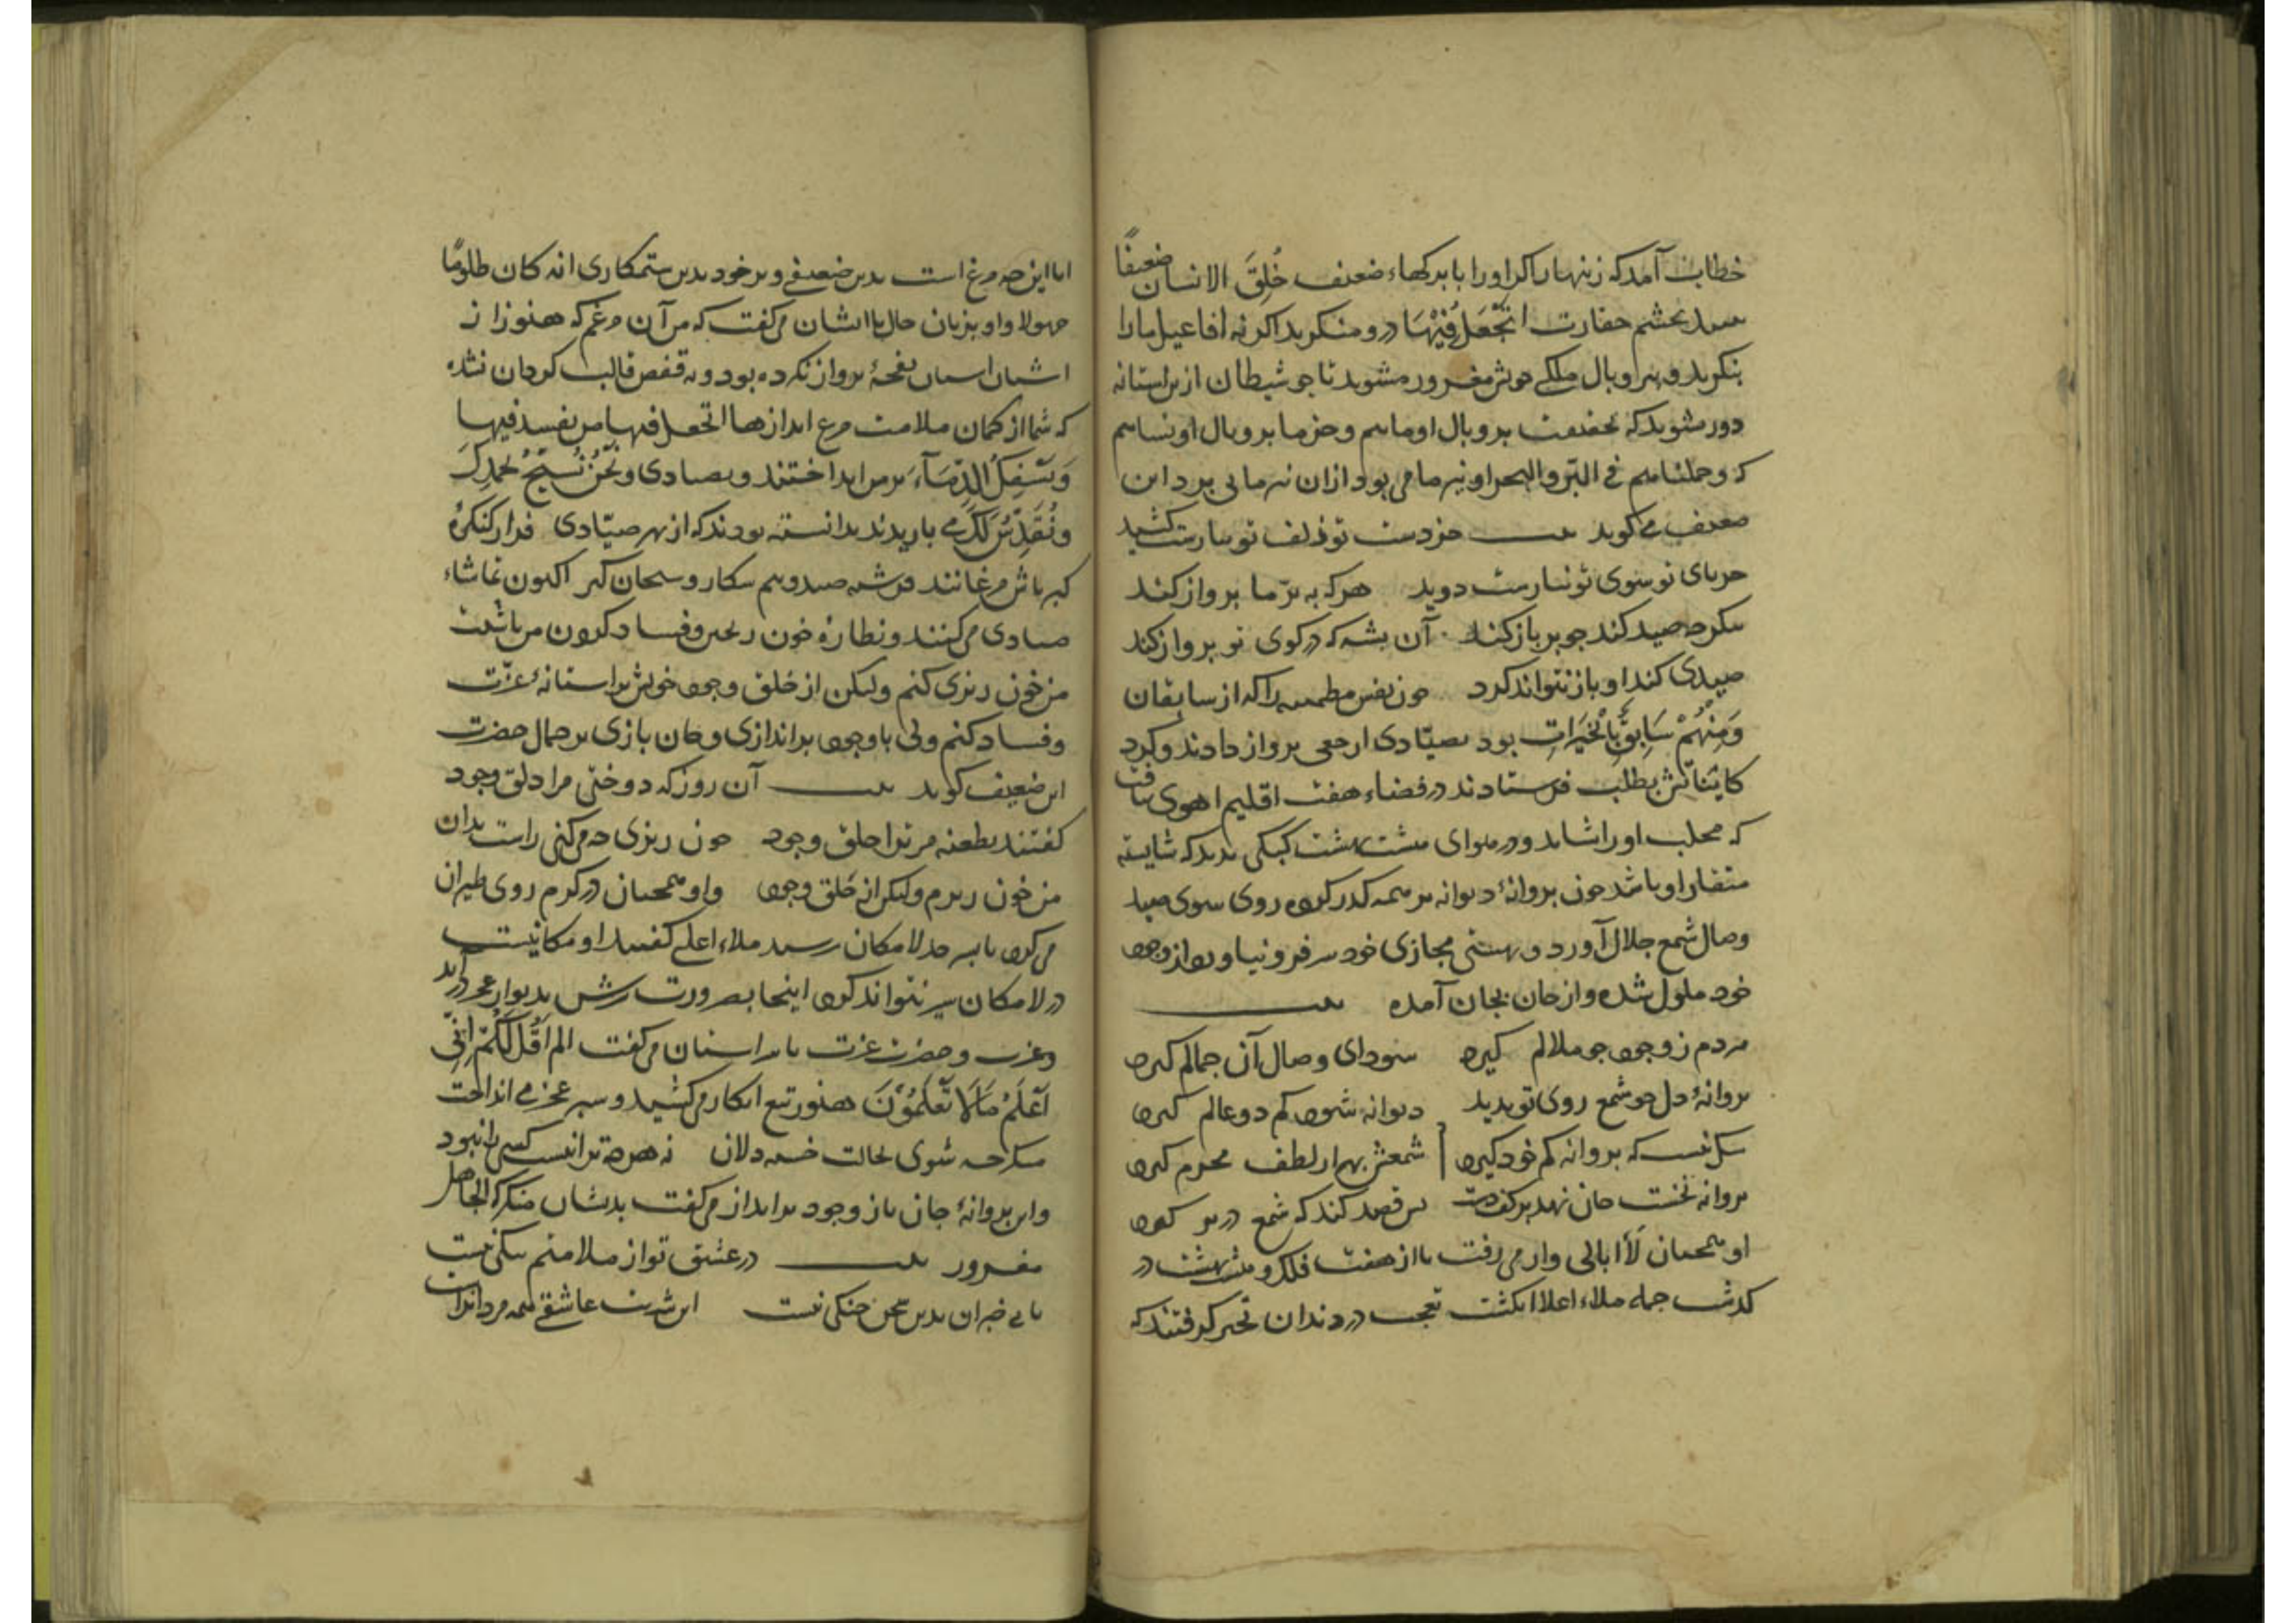 خطاب آمد که زنهار اکر او را با برکهاء ضعیف خُلِقَ الانسان ضعیفًا
بینید بچشم حقارت اتَجْعَلُ فُیْهَا درو منکرید اکر نه افاعیل ما را
بنکرید و ببر و بال ملکی خویش مغرور مشوید تا چو شیطان ازین استانه
دور مشوید که بحقیقت بر و بال او ماییم و جز ما بر و بال او نساییم
که و حملناهم فی البّر و البحر او نیز ما می پود ازان بر ما بی برد این
ضعیف می کوید بیت جز دست تو زلف تو نیارست کشید
جز پای تو سوی تو نیارست دوید هر که به پرّ ما پرواز کند
بنکر چه صید کند چو پر باز کند آن پشه که در کوی تو پرواز کند
صیدی کند او باز نتواند کرد چون نفس مطمینه را که از سابقان
وَمِنْهُمْ سَابِقٌ بِالْخَیَرَاتِ بود بصیّادی ارجعی پرواز دادند و کرد
کایناتش بطلب فرستادند در فضاء هفت اقلیم اهوی نیافت
که مخلب او را شاید و در هوای هشت بهشت کبکی ندید که شایسته
منقار او باشد چون پروانهٔ دیوانه بر همه کذر کرده روی سوی صید
وصال شمع جلال آورد و بهستی مجازی خود سر فرو نیاورد از وجود
خود ملول شده و از جان بجان آمده بیت
مردم ز وجود چو ملالم کیرد سودای وصال آن جمالم کیرد
پروانهٔ دل چو شمع روی تو بدید دیوانه شود کم دو عالم کیرد
شک نیست که پروانه کم خود کیرد شمعش بهزار لطف محرم کیرد
پروانه نخست جان نهد بر کف دست پس قصد کند که شمع در بر کیرد
او همچنان لَاابالی وار می رفت تا از هفت فلک و هشت بهشت در
کذشت جمله ملاء اعلا انکشت تعجب در دندان تحیر کرفتند که
ایا این چه مرغ است بدین ضعیفی و بر خود بدین ستمکاری انه کان ظلومًا
جهولا و او بزبان حال با ایشان می کفت که من آن مرغم که هنوز از
اشیان انسان نفحهٔ پرواز نکرده بود و به قفص قالب کردان نشده
که شما از کمان ملامت مرغ انداز ها اتجعل فیها من یفسد فیها
وَیَسْفِکُ الدِّمَآءَ بر من انداختند و بصیادی وَنَحْنُ نُسَبِّحُ بحَمْدِکَ
وَنُقَدِّسُ لَکَ می باریدند بدانسته بودند که از بهر صیّادی فراز کنکرهٔ
کبریاش مرغانند فرشته صید و پیمبر شکار و سبحان کیر اکنون تماشاء
صیادی می کنند و نظارهٔ خون ریختن و فساد کردن من باشند
من خون ریزی کنم ولیکن از خلق وجود خویش بر استانهٔ عزّت
و فساد کنم ولی با وجود بر اندازی و جان بازی بر جمال حضرت
این ضعیف کوید بیت آن روز که دوختی مرا دلق وجود
کفتند بطعنه مر ترا خلق وجود خون ریزی چه می کنی راست بدان
من خون ریزم ولیکن از خلق وجود و او همچنان در کرم روی طیران
می کرد تا بسر حد لامکان رسید ملاء اعلی کفتند او مکانیست
در لامکان سیر نتواند کرد اینجا بضرورت سرش بدیوار عجز در اید
و عزت و حضرت عزت با سر استان می کفت الم اَقُل لَکُمْ اِنّی
اَعْلَمُ مَا لَا تَعْلَمُوْنَ هنوز تیغ انکار می کشید و سپر عجز می انداخت
منکر چه شوی بحالت خسته دلان نه هر چه ترا نیست کسی را نبود
و این پروانهٔ جان باز وجود بر انداز می کفت بدیشان منکر که الجاهل
مغرور بیت در عشق تو از ملامتم ننکی نیست
با بی خبران بدین سخن جنکی نیست این شربت عاشقی همه مردانراست